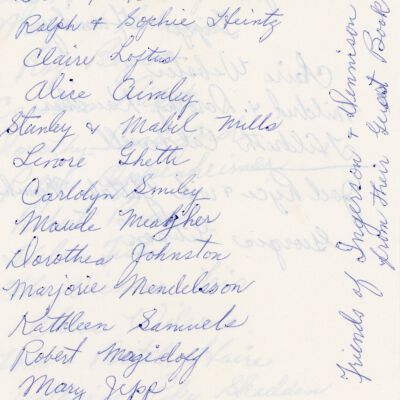 Ralph & Sophie Heintz
Claire Loftus
Alice Aimley
Stanley & Mabel Mills
Lenore Ghetti
Carlolyn Smiley
Maude Meagher
Dorothea Johnston
Marjorie Mendelsson
Kathleen Samuels
Robert Magidoff
Mary Jepp
Friends of Ingerson & Dennison
from their Guest Book